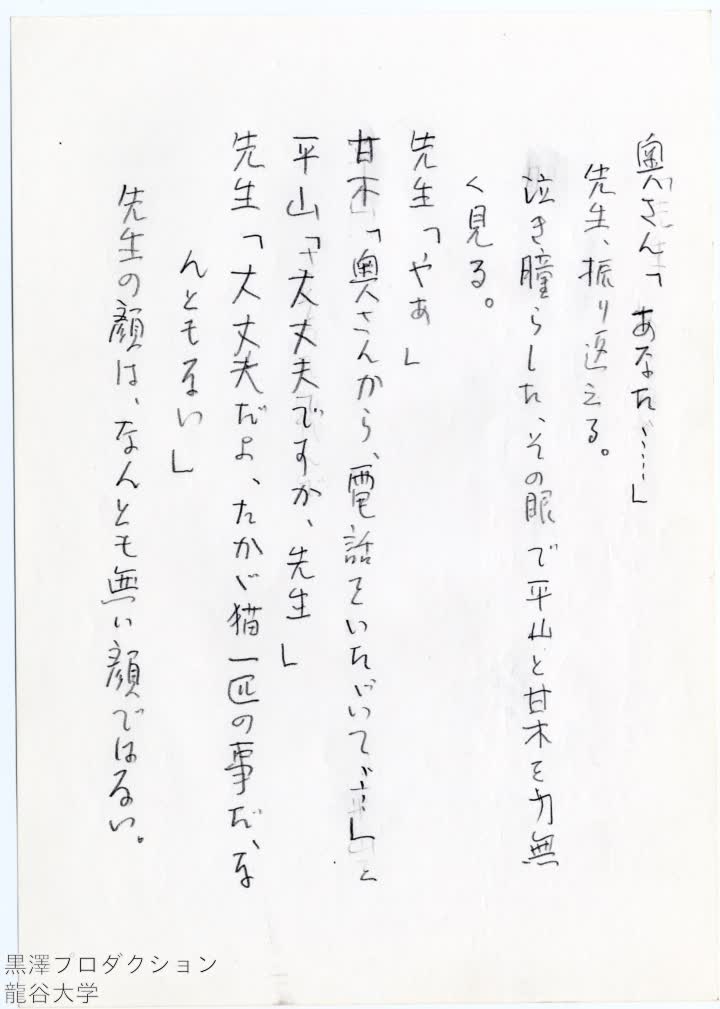 奥さん「あなた……」
先生、振り返える。
泣き瞳らした、その眼で平山と甘木を力無
く見る。
先生「やあ」
甘木「奥さんから、電話をいただいて…」
平山「大丈夫ですか、先生」
先生「大丈夫だよ、たかが猫一匹の事だ、な
んともない」
先生の顔は、なんとも無い顔ではない。
黒澤プロダクション
龍谷大学